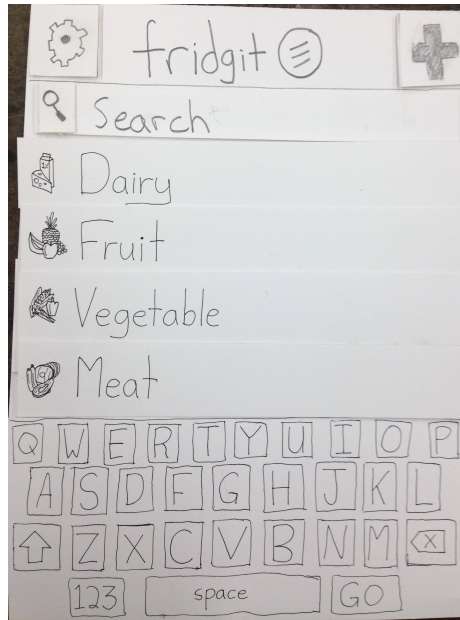 fridgit
Search
Dairy
Fruit
Vegetable
Meat
Q W E R T Y U I O P
A S D F G H J K L
Z X C V B N M X
123 space GO